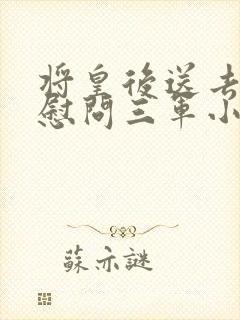 將皇後送去
慰問三軍小
蘇亦謎